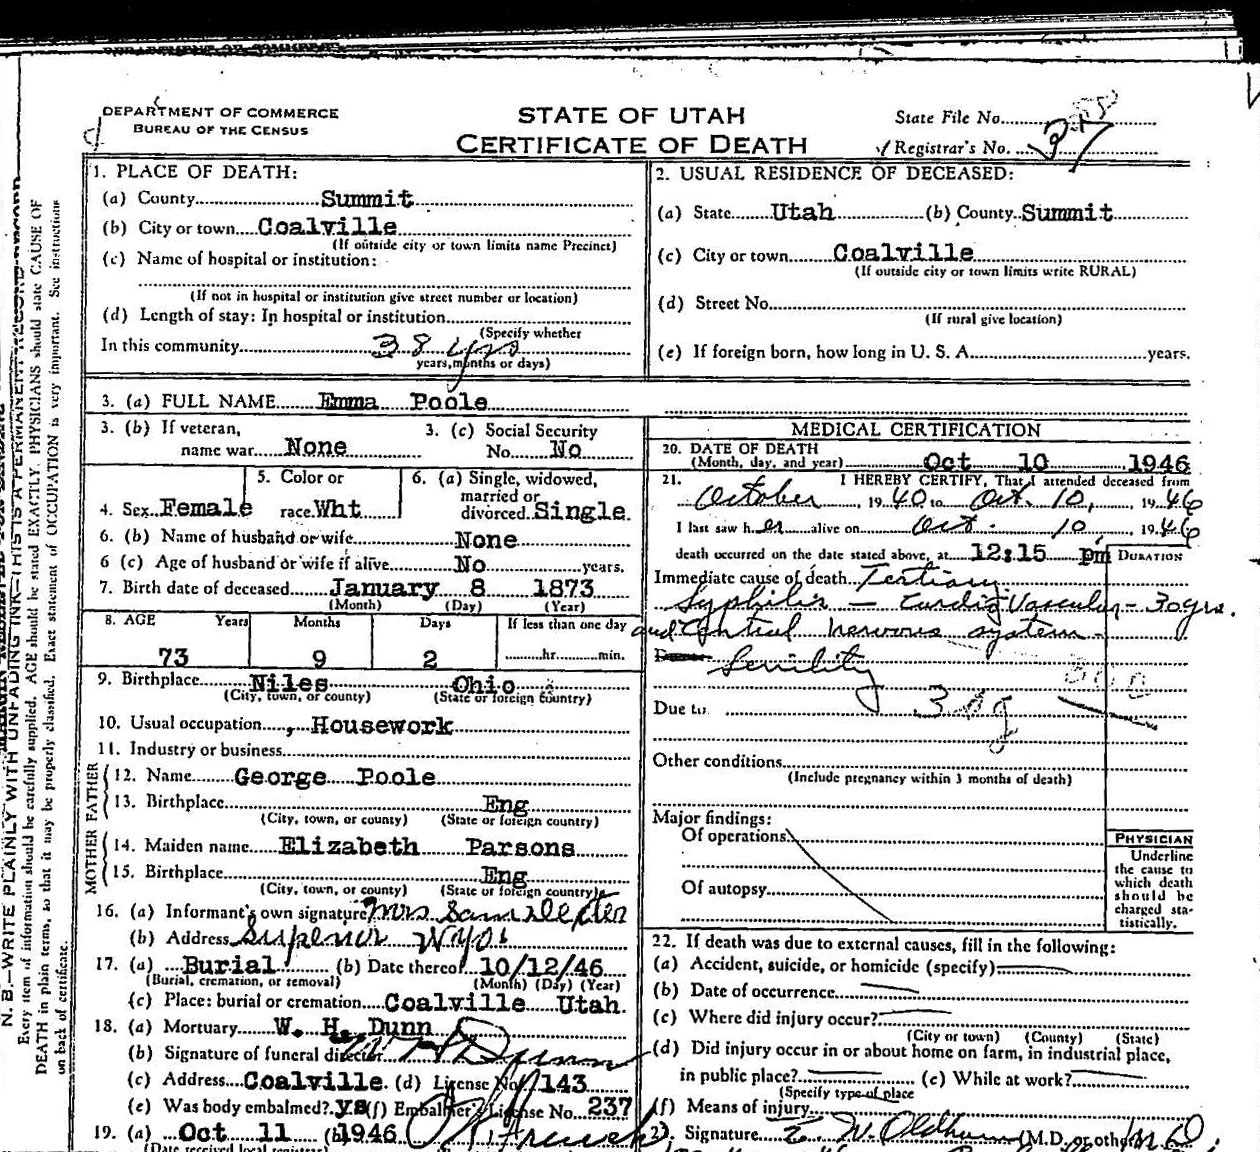 DEPARTMENT OF COMMERCE
BUREAU OF THE CENSUS
STATE OF UTAH
CERTIFICATE OF DEATH
State File No.
Registrar's No. 37
N. B.—WRITE PLAINLY WITH UNFADING INK—THIS IS A PERMANENT RECORD
Every item of information should be carefully supplied. AGE should be stated EXACTLY. PHYSICIANS should state CAUSE OF
DEATH in plain terms, so that it may be properly classified. Exact statement of OCCUPATION is very important. See instructions
on back of certificate.
1. PLACE OF DEATH:
(a) County Summit
(b) City or town Coalville
(If outside city or town limits name Precinct)
(c) Name of hospital or institution:
(If not in hospital or institution give street number or location)
(d) Length of stay: In hospital or institution
(Specify whether
In this community 38 yrs
years, months or days)
2. USUAL RESIDENCE OF DECEASED:
(a) State Utah (b) County Summit
(c) City or town Coalville
(If outside city or town limits write RURAL)
(d) Street No.
(If rural give location)
(e) If foreign born, how long in U. S. A. years.
3. (a) FULL NAME Emma Poole
3. (b) If veteran,
name war None
3. (c) Social Security
No. No
4. Sex Female
5. Color or
race Wht
6. (a) Single, widowed,
married or
divorced Single
6. (b) Name of husband or wife None
6 (c) Age of husband or wife if alive No years.
7. Birth date of deceased January 8 1873
(Month) (Day) (Year)
8. AGE Years Months Days If less than one day
73 9 2 hr. min.
9. Birthplace Niles Ohio
(City, town, or county) (State or foreign country)
10. Usual occupation , Housework
11. Industry or business
FATHER
12. Name George Poole
13. Birthplace Eng
(City, town, or county) (State or foreign country)
MOTHER
14. Maiden name Elizabeth Parsons
15. Birthplace Eng
(City, town, or county) (State or foreign country)
16. (a) Informant's own signature Mrs Sam
(b) Address Wyo.
17. (a) Burial (b) Date thereof 10/12/46
(Burial, cremation, or removal) (Month) (Day) (Year)
(c) Place: burial or cremation Coalville Utah
18. (a) Mortuary W. H. Dunn
(b) Signature of funeral director W H Dunn
(c) Address Coalville. (d) License No. 143
(e) Was body embalmed? ys (f) Embalmer's License No. 237
19. (a) Oct 11 1946 (b)
(Date received local registrar)
MEDICAL CERTIFICATION
20. DATE OF DEATH
(Month, day, and year) Oct 10 1946
21. I HEREBY CERTIFY, That I attended deceased from
October, 1940 to Oct. 10, 1946
I last saw her alive on Oct. 10, 1946
death occurred on the date stated above, at 12:15 pm
DURATION
Immediate cause of death Tertiary
Syphilis — Cardio Vascular - 30 yrs.
and Central nervous system -
Senility
Due to
Other conditions
(Include pregnancy within 3 months of death)
Major findings:
Of operations
Of autopsy
PHYSICIAN
Underline
the cause to
which death
should be
charged sta-
tistically.
22. If death was due to external causes, fill in the following:
(a) Accident, suicide, or homicide (specify)
(b) Date of occurrence
(c) Where did injury occur?
(City or town) (County) (State)
(d) Did injury occur in or about home on farm, in industrial place,
in public place? (e) While at work?
(Specify type of place
(f) Means of injury
23. Signature Oldham (M.D. or other) M D.